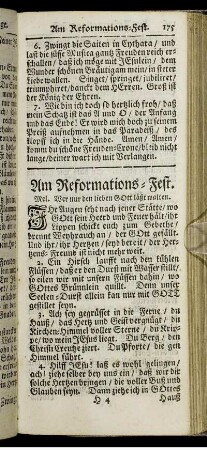 Am Reformations-Fest. 175
6. Zwingt die Saiten in Cythara / und
laßt die süsse Musica gantz Freuden reich er-
schallen / daß ich möge mit JEsulein / dem
Wunder schönen Bräutigam mein in steter
Liebe wallen. Singet / springet / jubiliret /
triumphiret / danckt dem HErren. Groß ist
der König der Ehren.
7. Wie bin ich doch so hertzlich froh / daß
mein Schatz ist das A und O / der Anfang
und das Ende! Er wird mich doch zu seinem
Preiß aufnehmen in das Paradeiß / deß
klopff ich in die Hände. Amen / Amen /
komm du schöne Freuden-Crone / bleib nicht
lange / deiner wart ich mit Verlangen.
Am Reformations-Fest.
Mel. Wer nur den lieben GOtt läßt walten.
Ihr Augen seht nach jener Stätte / wo
GOtt sein Heerd und Feuer hält / ihr
Lippen schickt euch zum Gebethe /
brennt Weyhrauch an / der GOtt gefällt.
Und ihr / ihr Hertzen / seyd bereit / der Her-
tzens-Freund ist nicht mehr weit.
2. Ein Hirsch laufft nach den kühlen
Flüssen / daß er den Durst mit Wasser stillt /
so eilen wir mit unsern Füssen dahin / wo
GOttes Brünnlein quillt. Denn unser
Seelen-Durst allein kan nur mit GOTT
gestillet seyn.
3. Ach sey gegrüsset in die Ferne / du
Hauß / das Hertz und Geist vergnügt / du
Kirchen-Himmel voller Sterne / du Krip-
pe / wo mein JEsus liegt. Du Berg / den
Christi Creutze ziert. Du Pforte / die gen
Himmel führt.
4. Hilff JEsu! laß es wohl gelingen /
ach! ziehe selber bey uns ein / daß wir dir
solche Hertzen bringen / die voller Buß und
Glauben seyn. Dann ziehe ich in GOttes
H 4 Hauß